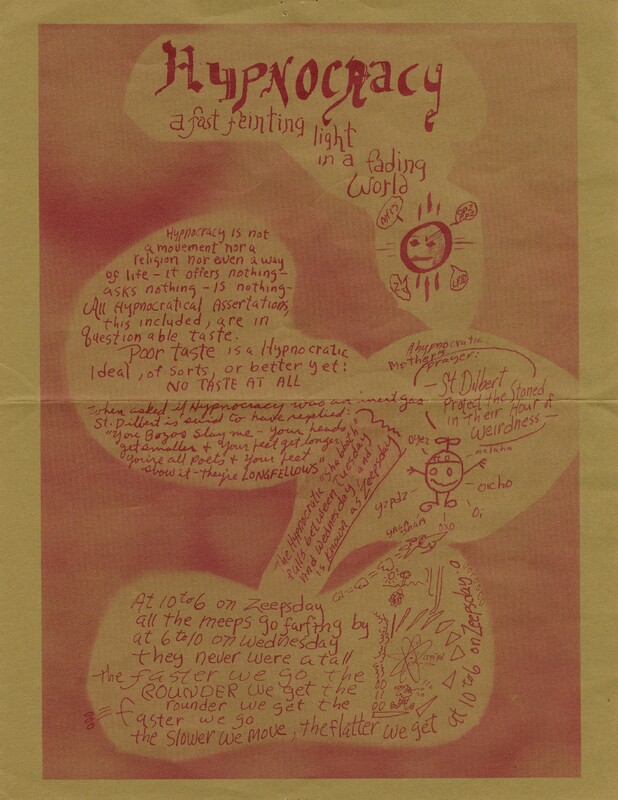 Hypnocracy
a fast feinting light
in a fading
World
Hypnocracy is not
a movement nor a
religion nor even a way
of life - it offers nothing -
asks nothing - IS nothing -
All Hypnocratical Assertations,
this included, are in
questionable taste.
Poor taste is a Hypnocratic
Ideal, of sorts, or better yet:
NO TASTE AT ALL
A hypnocratic
Mothers
prayer:
- St. Dilbert
Protect the Stoned
in their Hour of
Weirdness -
When asked if Hypnocracy was an inert gas
St. Dilbert is said to have replied:
"You Bozos slay me - your heads
get smaller & your feet get longer
you're all Poets & your feet
show it - they're LONGFELLOWS"
The Hypnocratic "she bot"
falls between Tuesday
and Wednesday and
is known as Zeepsday
oyez
oicho
yzpdz
Oi
At 10 to 6 on Zeepsday
all the meeps go farfing by
at 6 to 10 on Wednesday
they never were atall
the faster we go the
ROUNDER we get the
rounder we get the
faster we go
the slower we move, the flatter we get
at 10 to 6 on Zeepsday